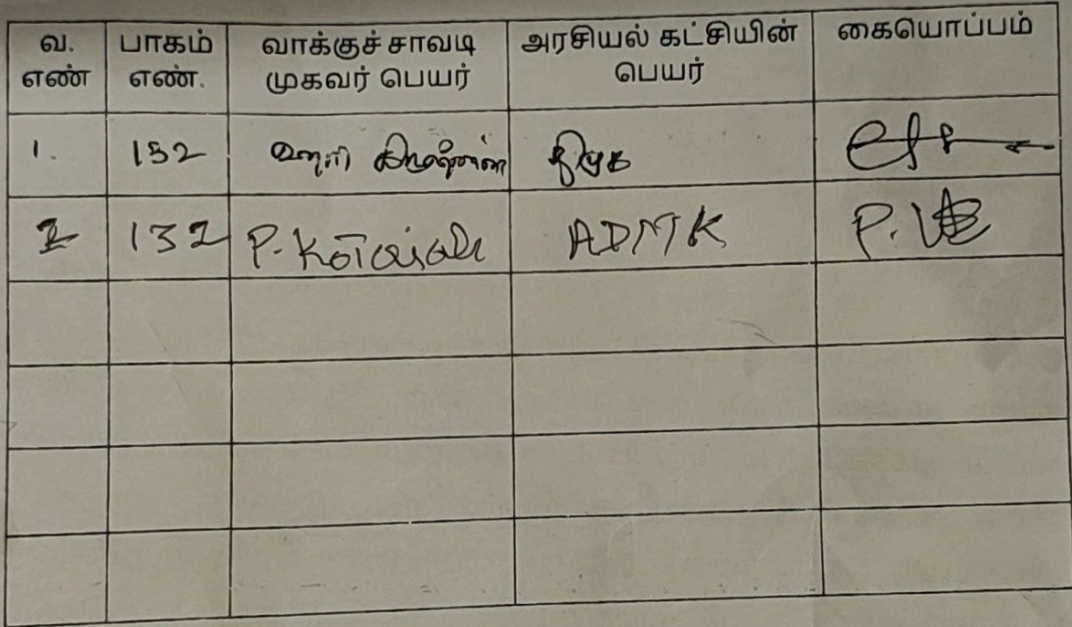 வ. எண்
பாகம் எண்.
வாக்குச் சாவடி முகவர் பெயர்
அரசியல் கட்சியின் பெயர்
கையொப்பம்
1. 132 ஹரி கிருஷ்ணன் திமுக
2 132 P. ADMK P.